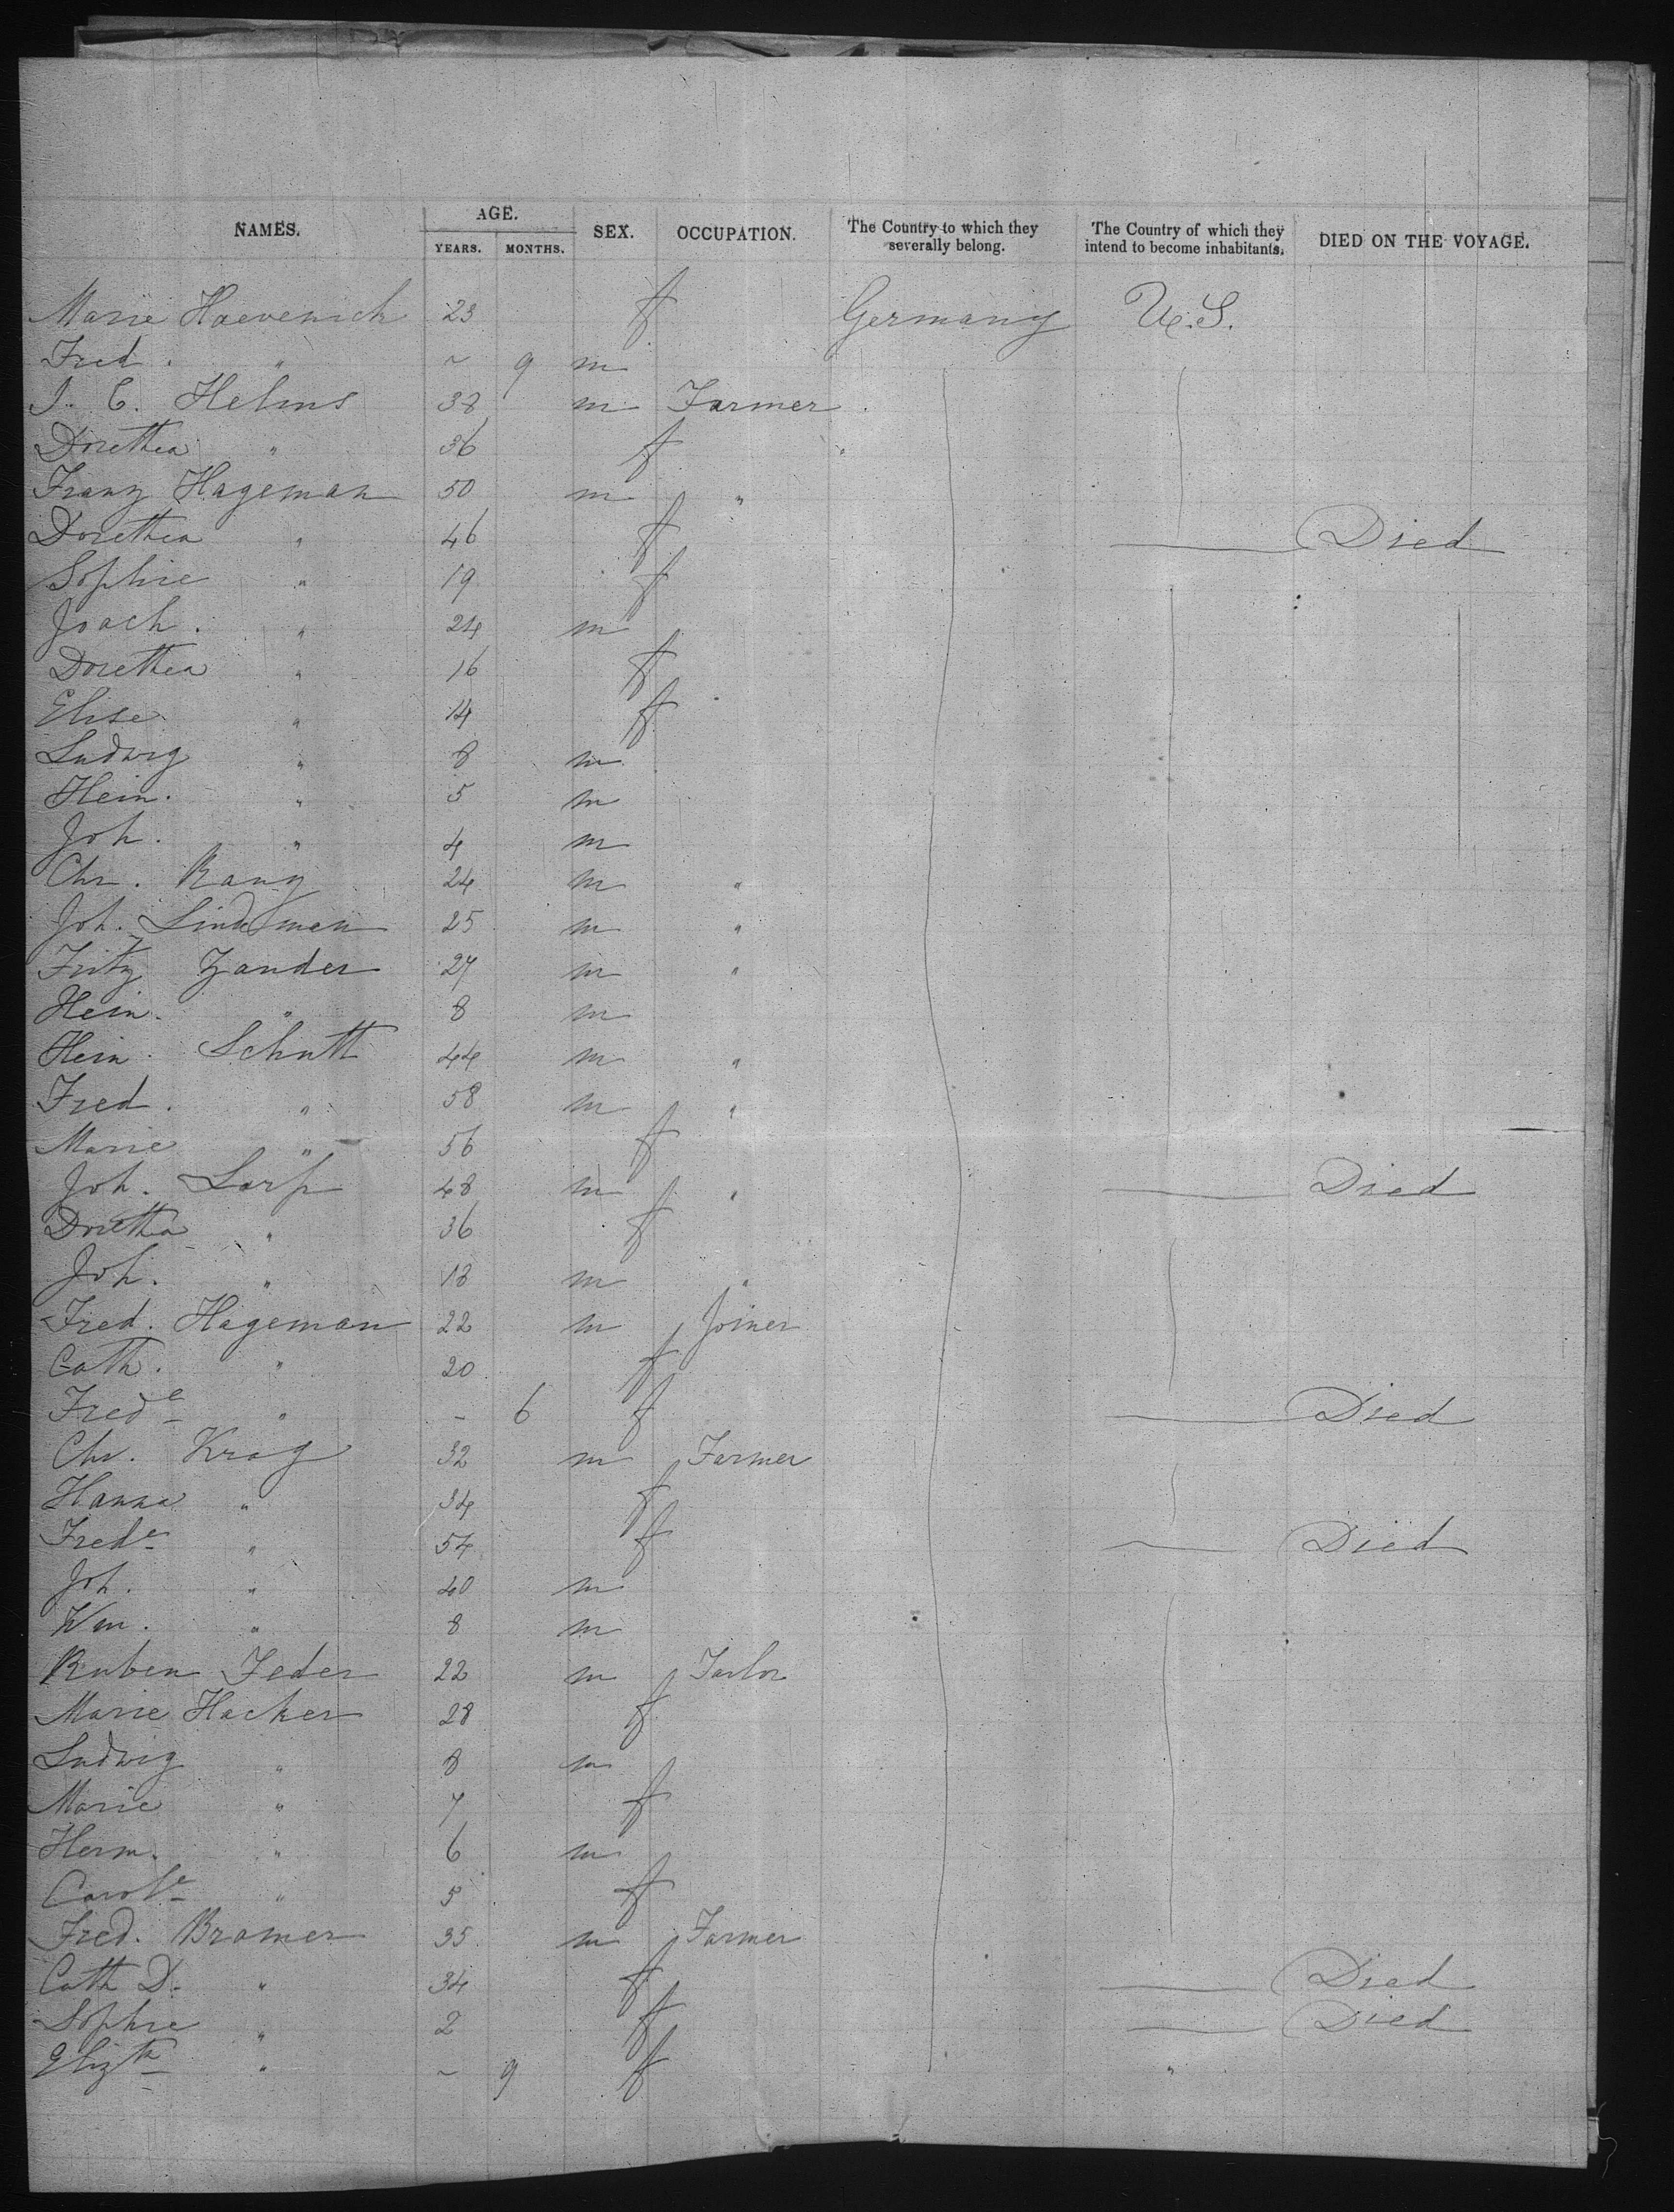 NAMES. AGE. YEARS. MONTHS. SEX. OCCUPATION. The Country to which they severally belong. The Country of which they intend to become inhabitants. DIED ON THE VOYAGE.
Marie Haevenich 23 f Germany U.S.
Fred. " ~ 9 m
J. C. Helms 38 m Farmer
Dorethea " 36 f
Franz Hageman 50 m "
Dorethea " 46 f Died
Sophie " 19 f
Joach. " 24 m
Dorethea " 16 f
Elise " 14 f
Ludwig " 8 m
Hein. " 5 m
Joh. " 4 m
Chr. Rang 24 m "
Joh. Lindeman 25 m "
Fritz Zander 27 m "
Hein. " 8 m
Hein. Schutt 44 m "
Fred. " 58 m "
Marie " 56 f
Joh. Sarp 48 m " Died
Doretha " 36 f
Joh. " 18 m "
Fred. Hageman 22 m Joiner
Cath. " 20 f
Frede " - 6 f Died
Chr. Krog 32 m Farmer
Hanna " 34 f
Frede " 54 f Died
Joh. " 40 m
Wm. " 8 m
Ruben Feder 22 m Tailor
Marie Hacker 28 f
Ludwig " 8 m
Marie " 7 f
Herm. " 6 m
Carole " 5 f
Fred. Bramer 35 m Farmer
Cath D. " 34 f Died
Sophie " 2 f Died
Elizth " ~ 9 f "